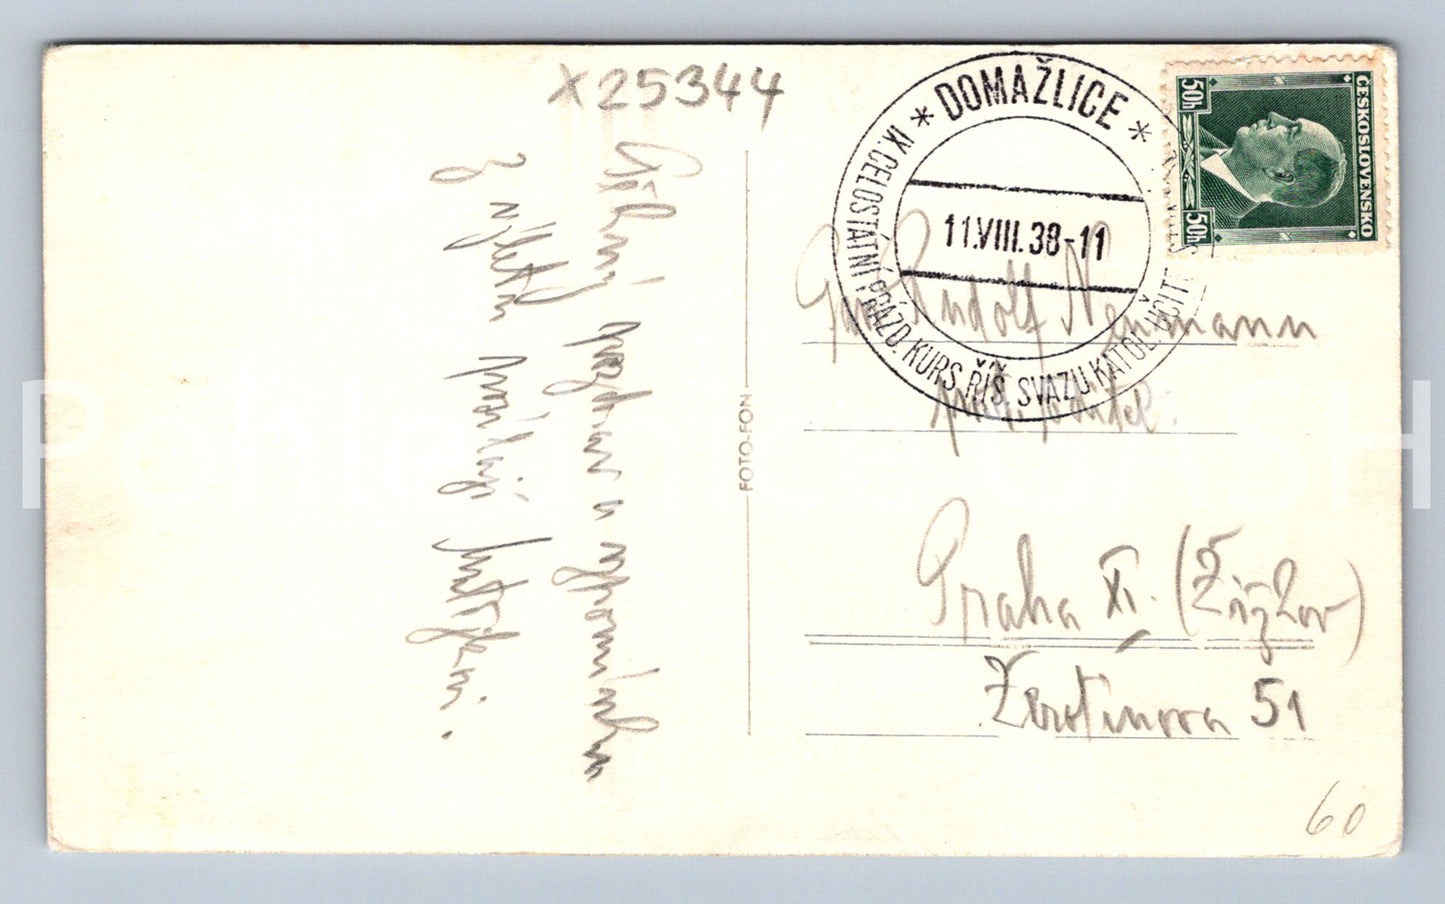 X25344
* DOMAŽLICE *
IX. CELOSTÁTNÍ PRÁZD. KURS. ŘÍŠ. SVAZU KATOL. UČIT
11.VIII.38-11
ČESKOSLOVENSKO
50h
50h
pozdrav a vzpomínku
Z výletu posílají
FOTO-FON
Pan Rudolf Neumann
Praha XI. (Žižkov)
Žerotínova 51
60